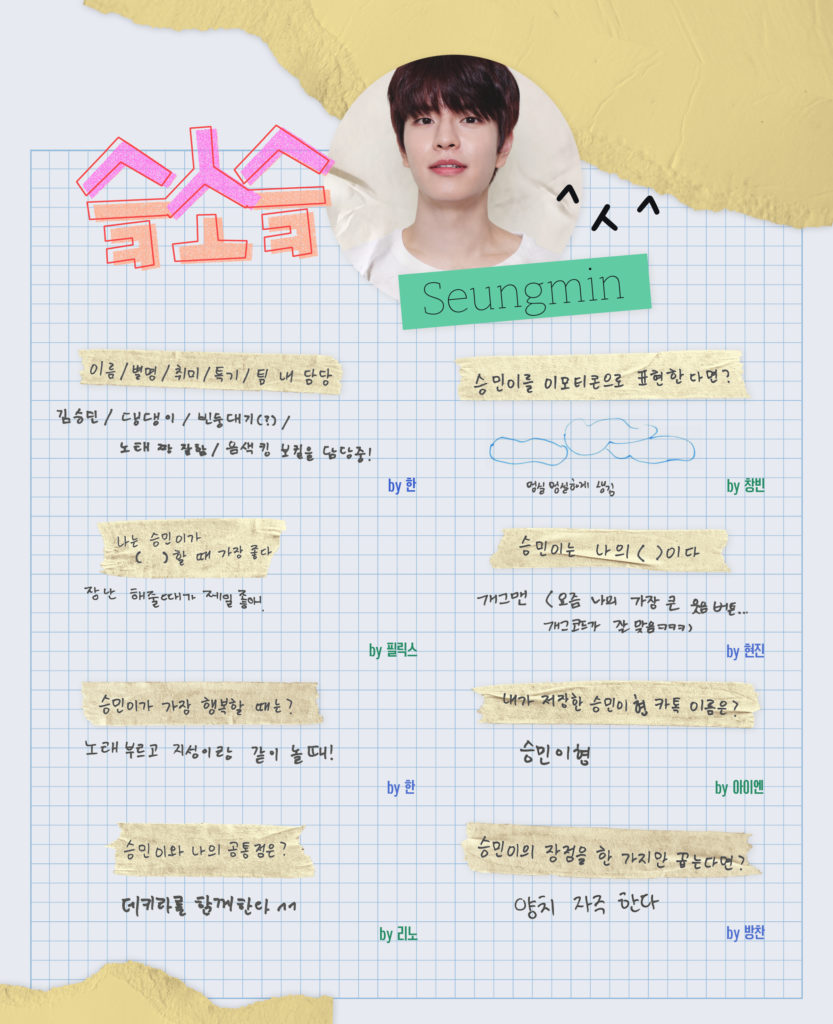 슥소슥
^ㅅ^
Seungmin
이름/별명/취미/특기/팀 내 담당
김승민/ 댕댕이 / 빈둥대기(?) /
노래 짱 잘함/ 음색킹 보컬을 담당중!
by 한
승민이를 이모티콘으로 표현한다면?
멍실멍실하게 생김
by 창빈
나는 승민이가
( )할 때 가장 좋다
장난 해줄때가 제일 좋아!
by 필릭스
승민이는 나의 ( )이다
개그맨 (요즘 나의 가장 큰 웃음버튼...
개그코드가 잘 맞음ㅋㅋㅋ)
by 현진
승민이가 가장 행복할 때는?
노래부르고 지성이랑 같이 놀때!
by 한
내가 저장한 승민이형 카톡 이름은?
승민이형
by 아이엔
승민이와 나의 공통점은?
데키라를 함께한다 ^^
by 리노
승민이의 장점을 한 가지만 꼽는다면?
양치 자주 한다
by 방찬